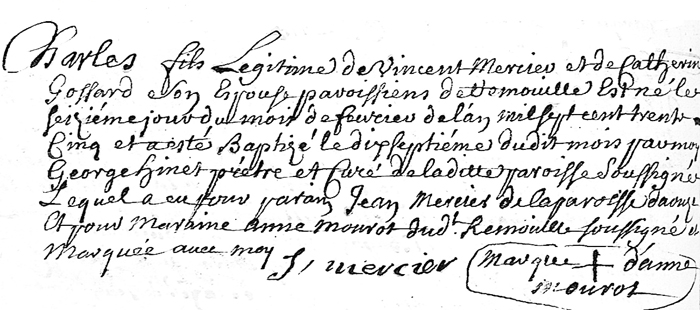 Charles fils Legitime de Vincent Mercier et de Catherin
Gossard Son Espouse paroissiens de Est né le
seiziéme jour du mois de fevrier de l'an mil sept cent trente
Cinq et a esté Baptizé le dixseptiéme dudit mois par moy
George hinet prétre et Curé de laditte paroisse soussigné
Lequel a eu pour parain Jean Mercier de la paroisse
Et pour Maraine anne mourot dud.t Remouille soussigné
Marquée avec moy J, mercier Marque + d'anne
mourot